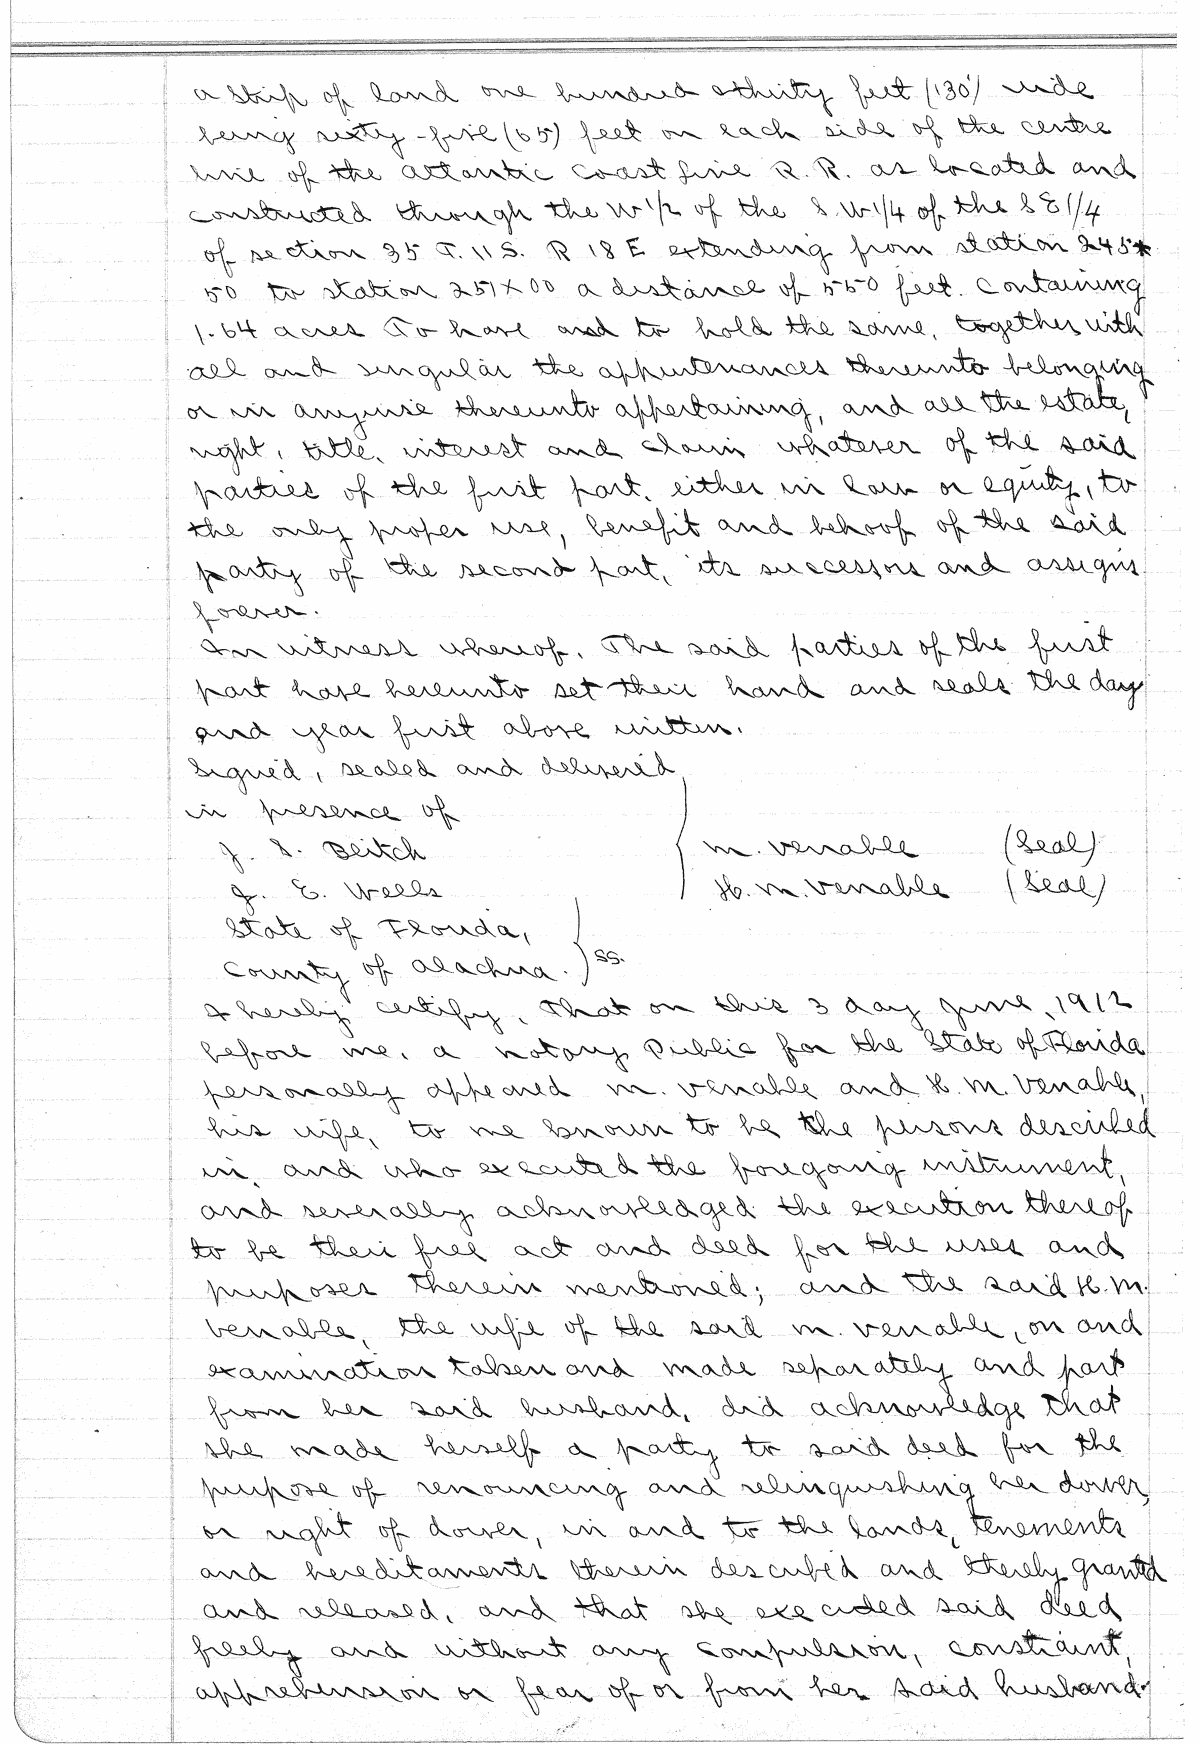 a strip of land one hundred & thirty feet (130') wide
being sixty-five (65) feet on each side of the centre
line of the Atlantic Coast Line R. R. as located and
constructed through the W 1/2 of the S. W 1/4 of the S E 1/4
of section 35 T. 11 S. R 18 E extending from station 245x
50 to station 251x00 a distance of 550 feet. Containing
1.64 acres To have and to hold the same, together with
all and singular the appurtenances thereunto belonging
or in anywise thereunto appertaining, and all the estate,
right, title, interest and claim whatever of the said
parties of the first part, either in law or equity, to
the only proper use, benefit and behoof of the said
party of the second part, its successors and assigns
forever.
In witness whereof, The said parties of the first
part have hereunto set their hand and seals the day
and year first above written.
Signed, sealed and delivered
in presence of
J. S. Beitch M. Venable (Seal)
J. E. Wells H. M. Venable (Seal)
State of Florida,
County of Alachua. SS.
I hereby certify, That on this 3 day June, 1912
before me, a notary Public for the State of Florida
personally appeared M. Venable and H. M. Venable,
his wife, to me known to be the persons described
in, and who executed the foregoing instrument,
and severally acknowledged the execution thereof
to be their free act and deed for the uses and
purposes therein mentioned; and the said H. M.
Venable, the wife of the said M. Venable, on and
examination taken and made separately and part
from her said husband, did acknowledge that
she made herself a party to said deed for the
purpose of renouncing and relinquishing her dower,
or right of dower, in and to the lands, tenements
and hereditaments therein described and thereby granted
and released, and that she executed said deed
freely and without any compulsion, constraint,
apprehension or fear of or from her said husband.